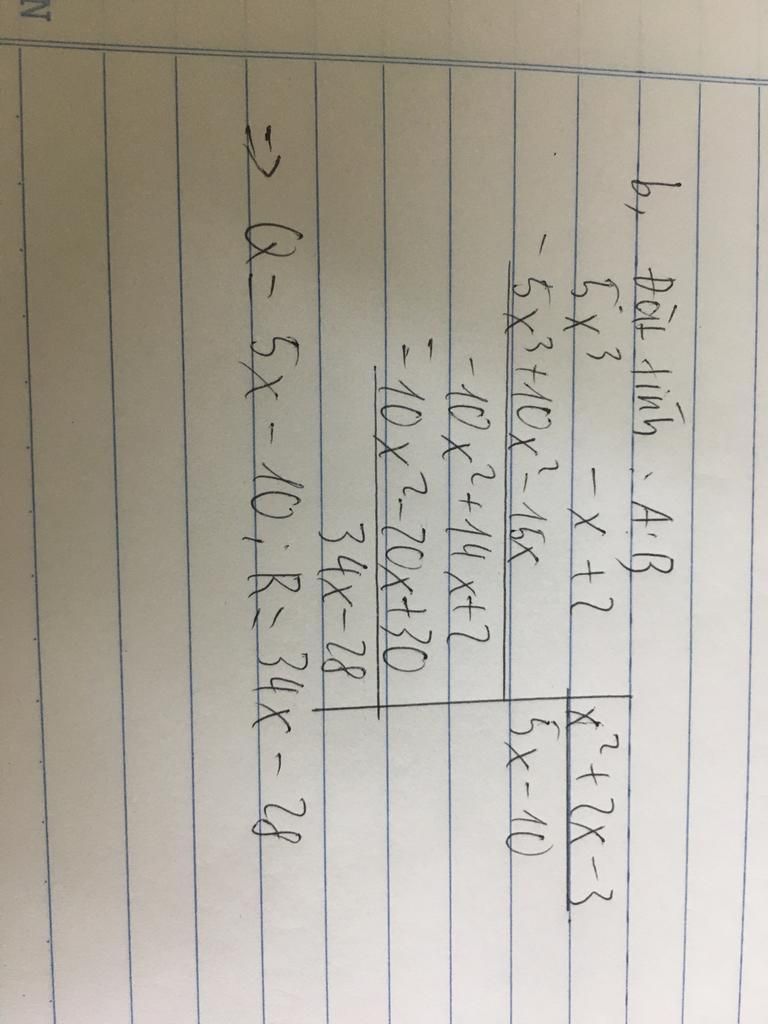 b, Đặt tính : A:B
5x³ - x + 2 | x² + 2x - 3
- 5x³ + 10x² - 15x | 5x - 10
- 10x² + 14x + 2
- - 10x² - 20x + 30
34x - 28
⇒ Q = 5x - 10; R = 34x - 28
N